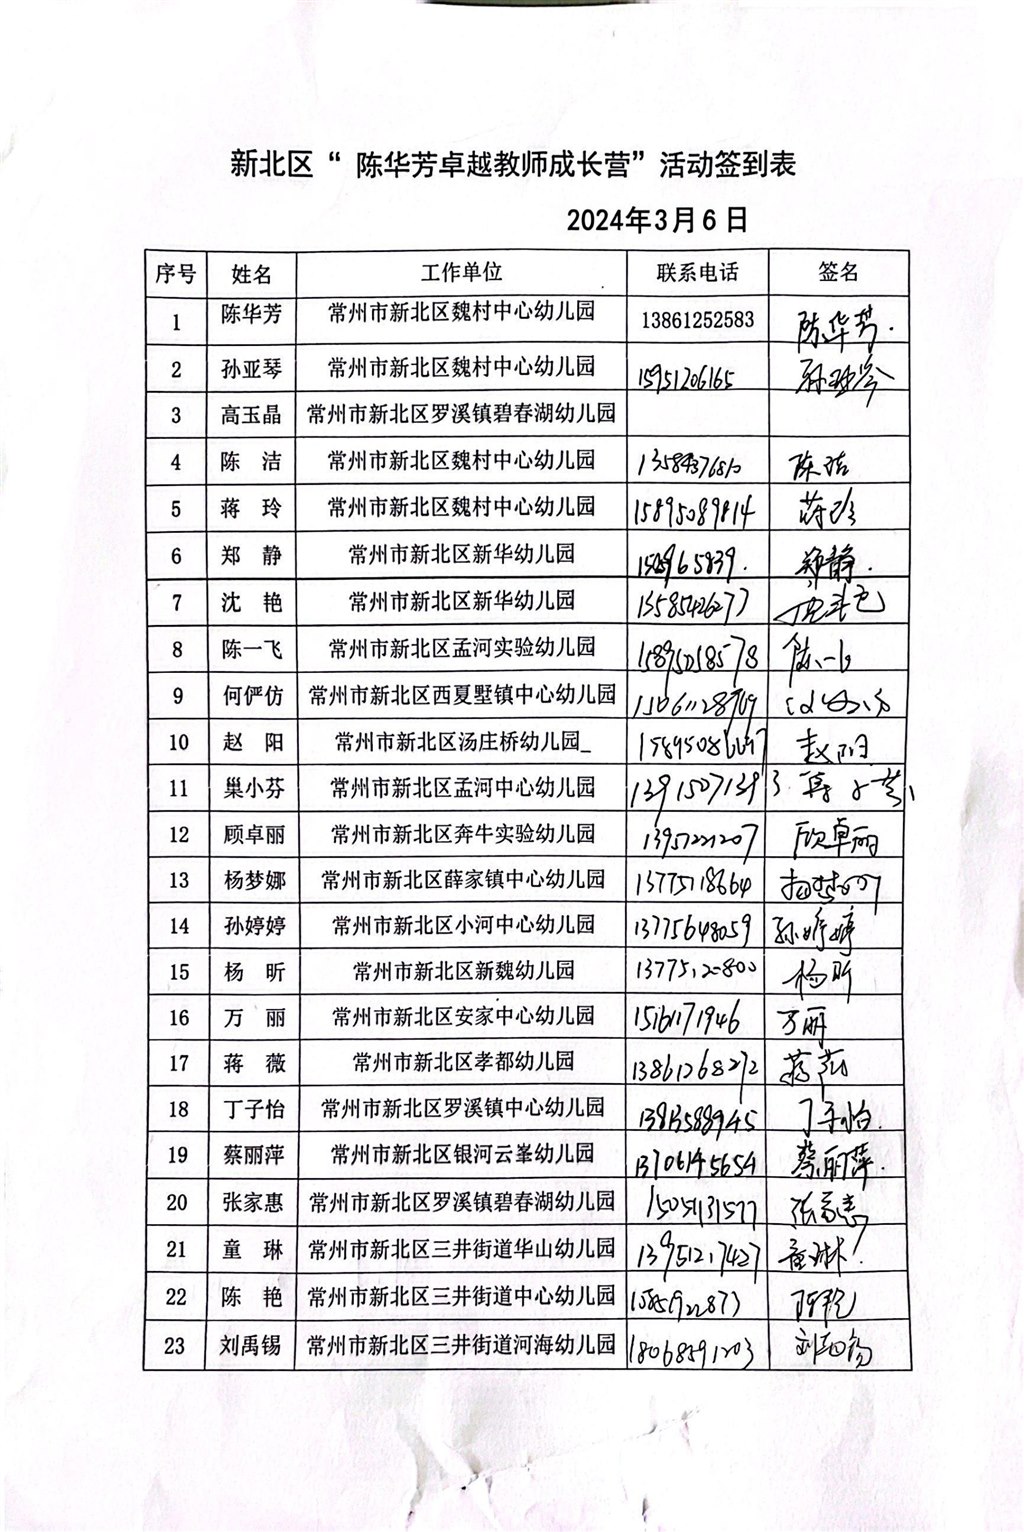 新北区“ 陈华芳卓越教师成长营”活动签到表
2024年3月6日
序号 姓名 工作单位 联系电话 签名
1 陈华芳 常州市新北区魏村中心幼儿园 13861252583 陈华芳.
2 孙亚琴 常州市新北区魏村中心幼儿园 15951206165 孙亚琴
3 高玉晶 常州市新北区罗溪镇碧春湖幼儿园
4 陈 洁 常州市新北区魏村中心幼儿园 陈洁
5 蒋 玲 常州市新北区魏村中心幼儿园 15895089814 蒋玲
6 郑 静 常州市新北区新华幼儿园 郑静.
7 沈 艳 常州市新北区新华幼儿园 13585426277 沈艳
8 陈一飞 常州市新北区孟河实验幼儿园 陈一飞
9 何俨仿 常州市新北区西夏墅镇中心幼儿园
10 赵 阳 常州市新北区汤庄桥幼儿园_ 赵阳
11 巢小芬 常州市新北区孟河中心幼儿园 13915071393
12 顾卓丽 常州市新北区奔牛实验幼儿园 13951221207 顾卓丽
13 杨梦娜 常州市新北区薛家镇中心幼儿园 13775118664 杨梦娜
14 孙婷婷 常州市新北区小河中心幼儿园 13775648059 孙婷婷
15 杨 昕 常州市新北区新魏幼儿园 13775120800 杨昕
16 万 丽 常州市新北区安家中心幼儿园 15161171946 万丽
17 蒋 薇 常州市新北区孝都幼儿园 13861268272 蒋薇
18 丁子怡 常州市新北区罗溪镇中心幼儿园 丁子怡.
19 蔡丽萍 常州市新北区银河云峯幼儿园 13706145654 蔡丽萍.
20 张家惠 常州市新北区罗溪镇碧春湖幼儿园 15051131577 张家惠
21 童 琳 常州市新北区三井街道华山幼儿园 13951217427 童琳!
22 陈 艳 常州市新北区三井街道中心幼儿园 陈艳
23 刘禹锡 常州市新北区三井街道河海幼儿园 18068591203 刘禹锡